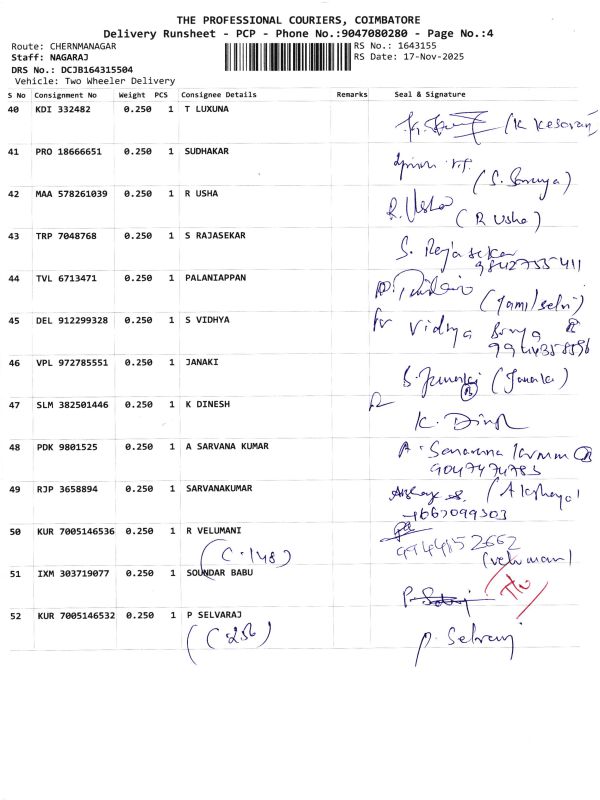 THE PROFESSIONAL COURIERS, COIMBATORE
Delivery Runsheet - PCP - Phone No.:9047080280 - Page No.:4
Route: CHERNMANAGAR RS No.: 1643155
Staff: NAGARAJ RS Date: 17-Nov-2025
DRS No.: DCJB164315504
Vehicle: Two Wheeler Delivery
S No Consignment No Weight PCS Consignee Details Remarks Seal & Signature
40 KDI 332482 0.250 1 T LUXUNA
(K Kesavan
41 PRO 18666651 0.250 1 SUDHAKAR
(S. Saranya)
42 MAA 578261039 0.250 1 R USHA
R. Usha (R Usha)
43 TRP 7048768 0.250 1 S RAJASEKAR
S. Rejasekar
9842755411
44 TVL 6713471 0.250 1 PALANIAPPAN
(Tamilselvi)
45 DEL 912299328 0.250 1 S VIDHYA
for Vidhya
46 VPL 972785551 0.250 1 JANAKI
S. Janaki (Janaki)
47 SLM 382501446 0.250 1 K DINESH
K. Dinsh
48 PDK 9801525 0.250 1 A SARVANA KUMAR
A. Saravana
9047474783
49 RJP 3658894 0.250 1 SARVANAKUMAR
(Akshaya)
50 KUR 7005146536 0.250 1 R VELUMANI
(C.148)
9944152662
(velumani)
51 IXM 303719077 0.250 1 SOUNDAR BABU
52 KUR 7005146532 0.250 1 P SELVARAJ
(C 256)
P. Selvaraj